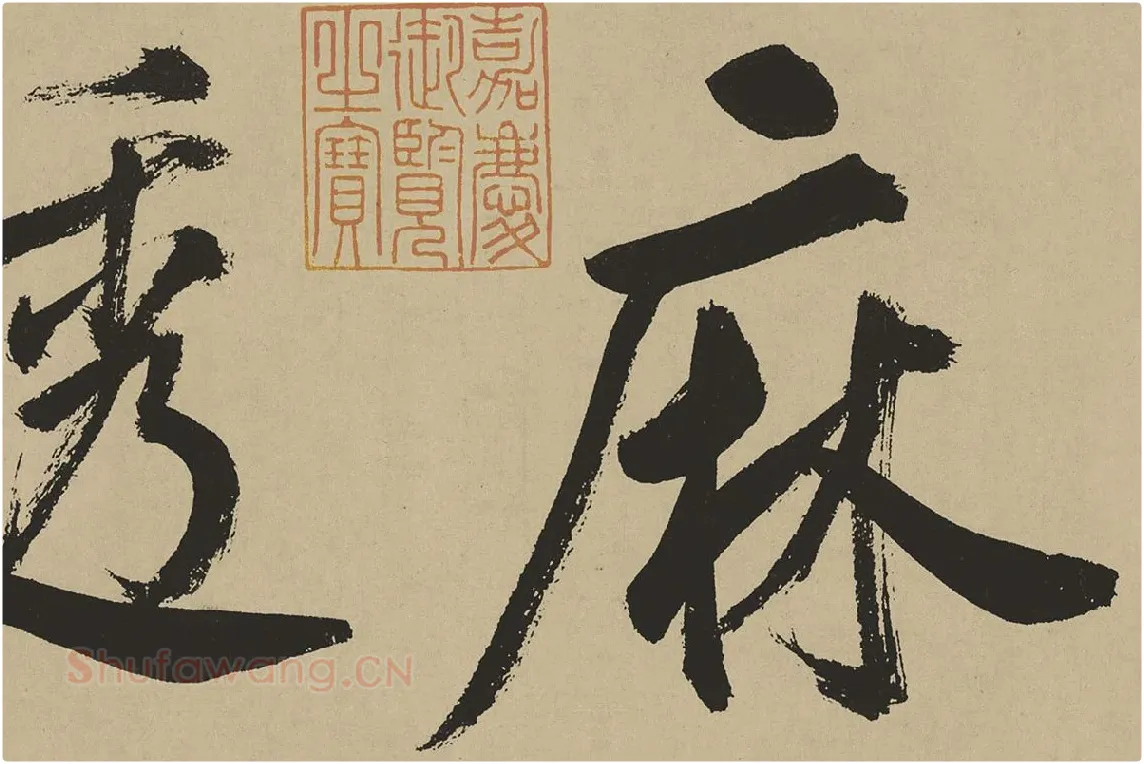 麻
嘉慶
御覽
之寶
透
Shufawang.CN